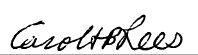 Carol H B Lees